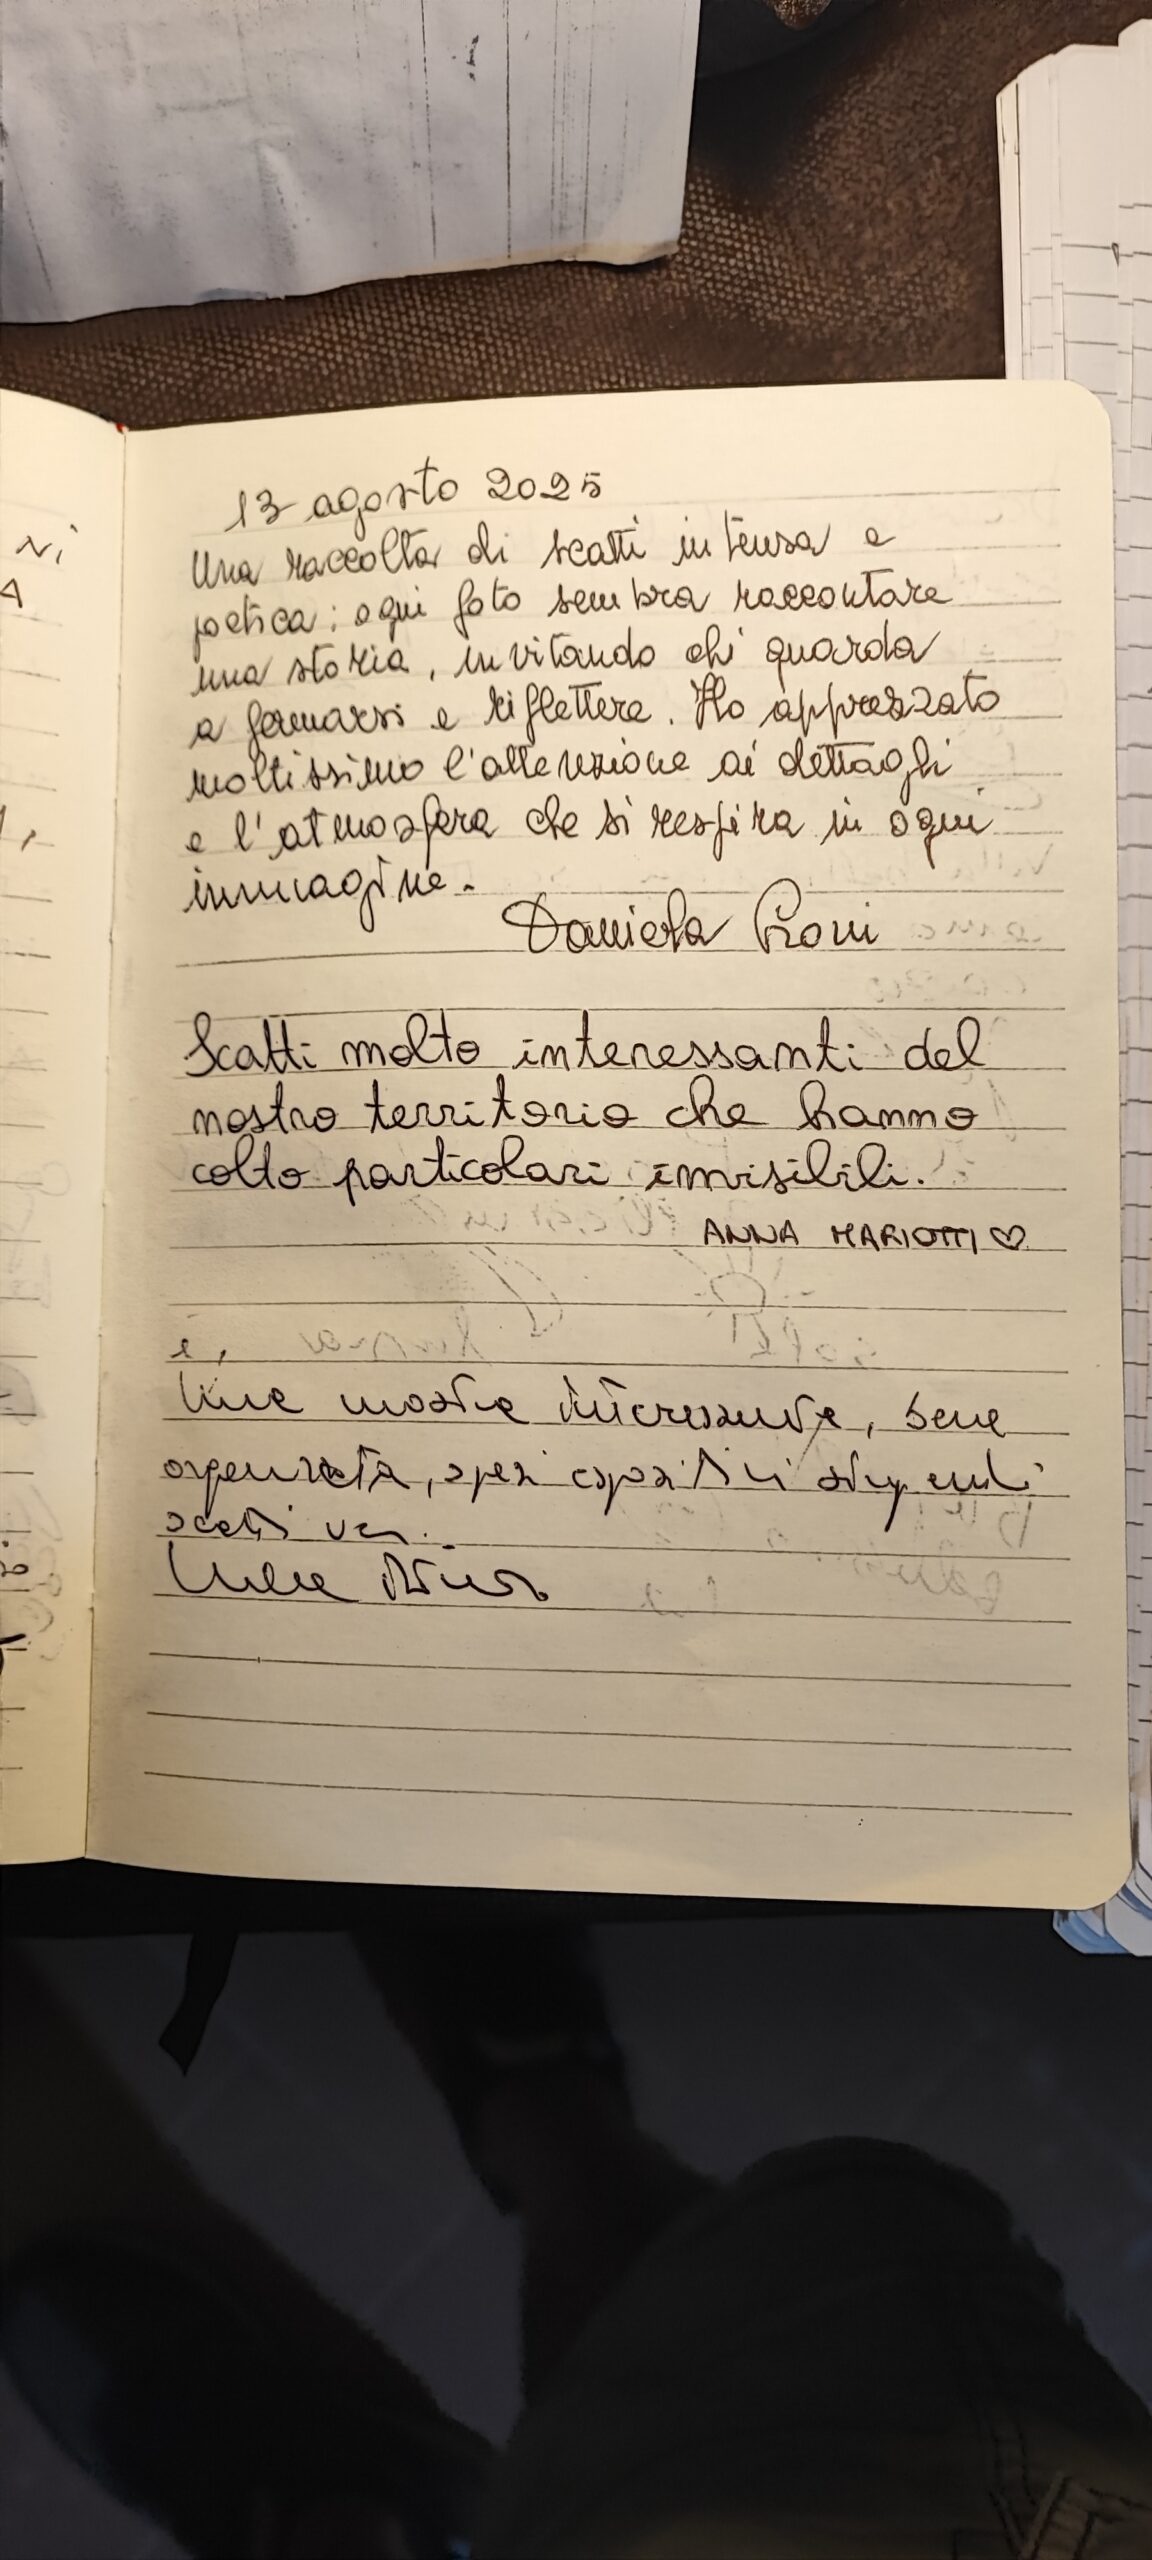 13 agosto 2025
Una raccolta di scatti intensa e
poetica: ogni foto sembra raccontare
una storia, invitando chi guarda
a fermarsi e riflettere. Ho apprezzato
moltissimo l'attenzione ai dettagli
e l'atmosfera che si respira in ogni
immagine.
Daniela
Scatti molto interessanti del
nostro territorio che hanno
colto particolari invisibili.
ANNA MARIOTTI ♡
È,
Una mostra interessante, bene
organizzata, spazi espositivi stupendi
scatti veri.